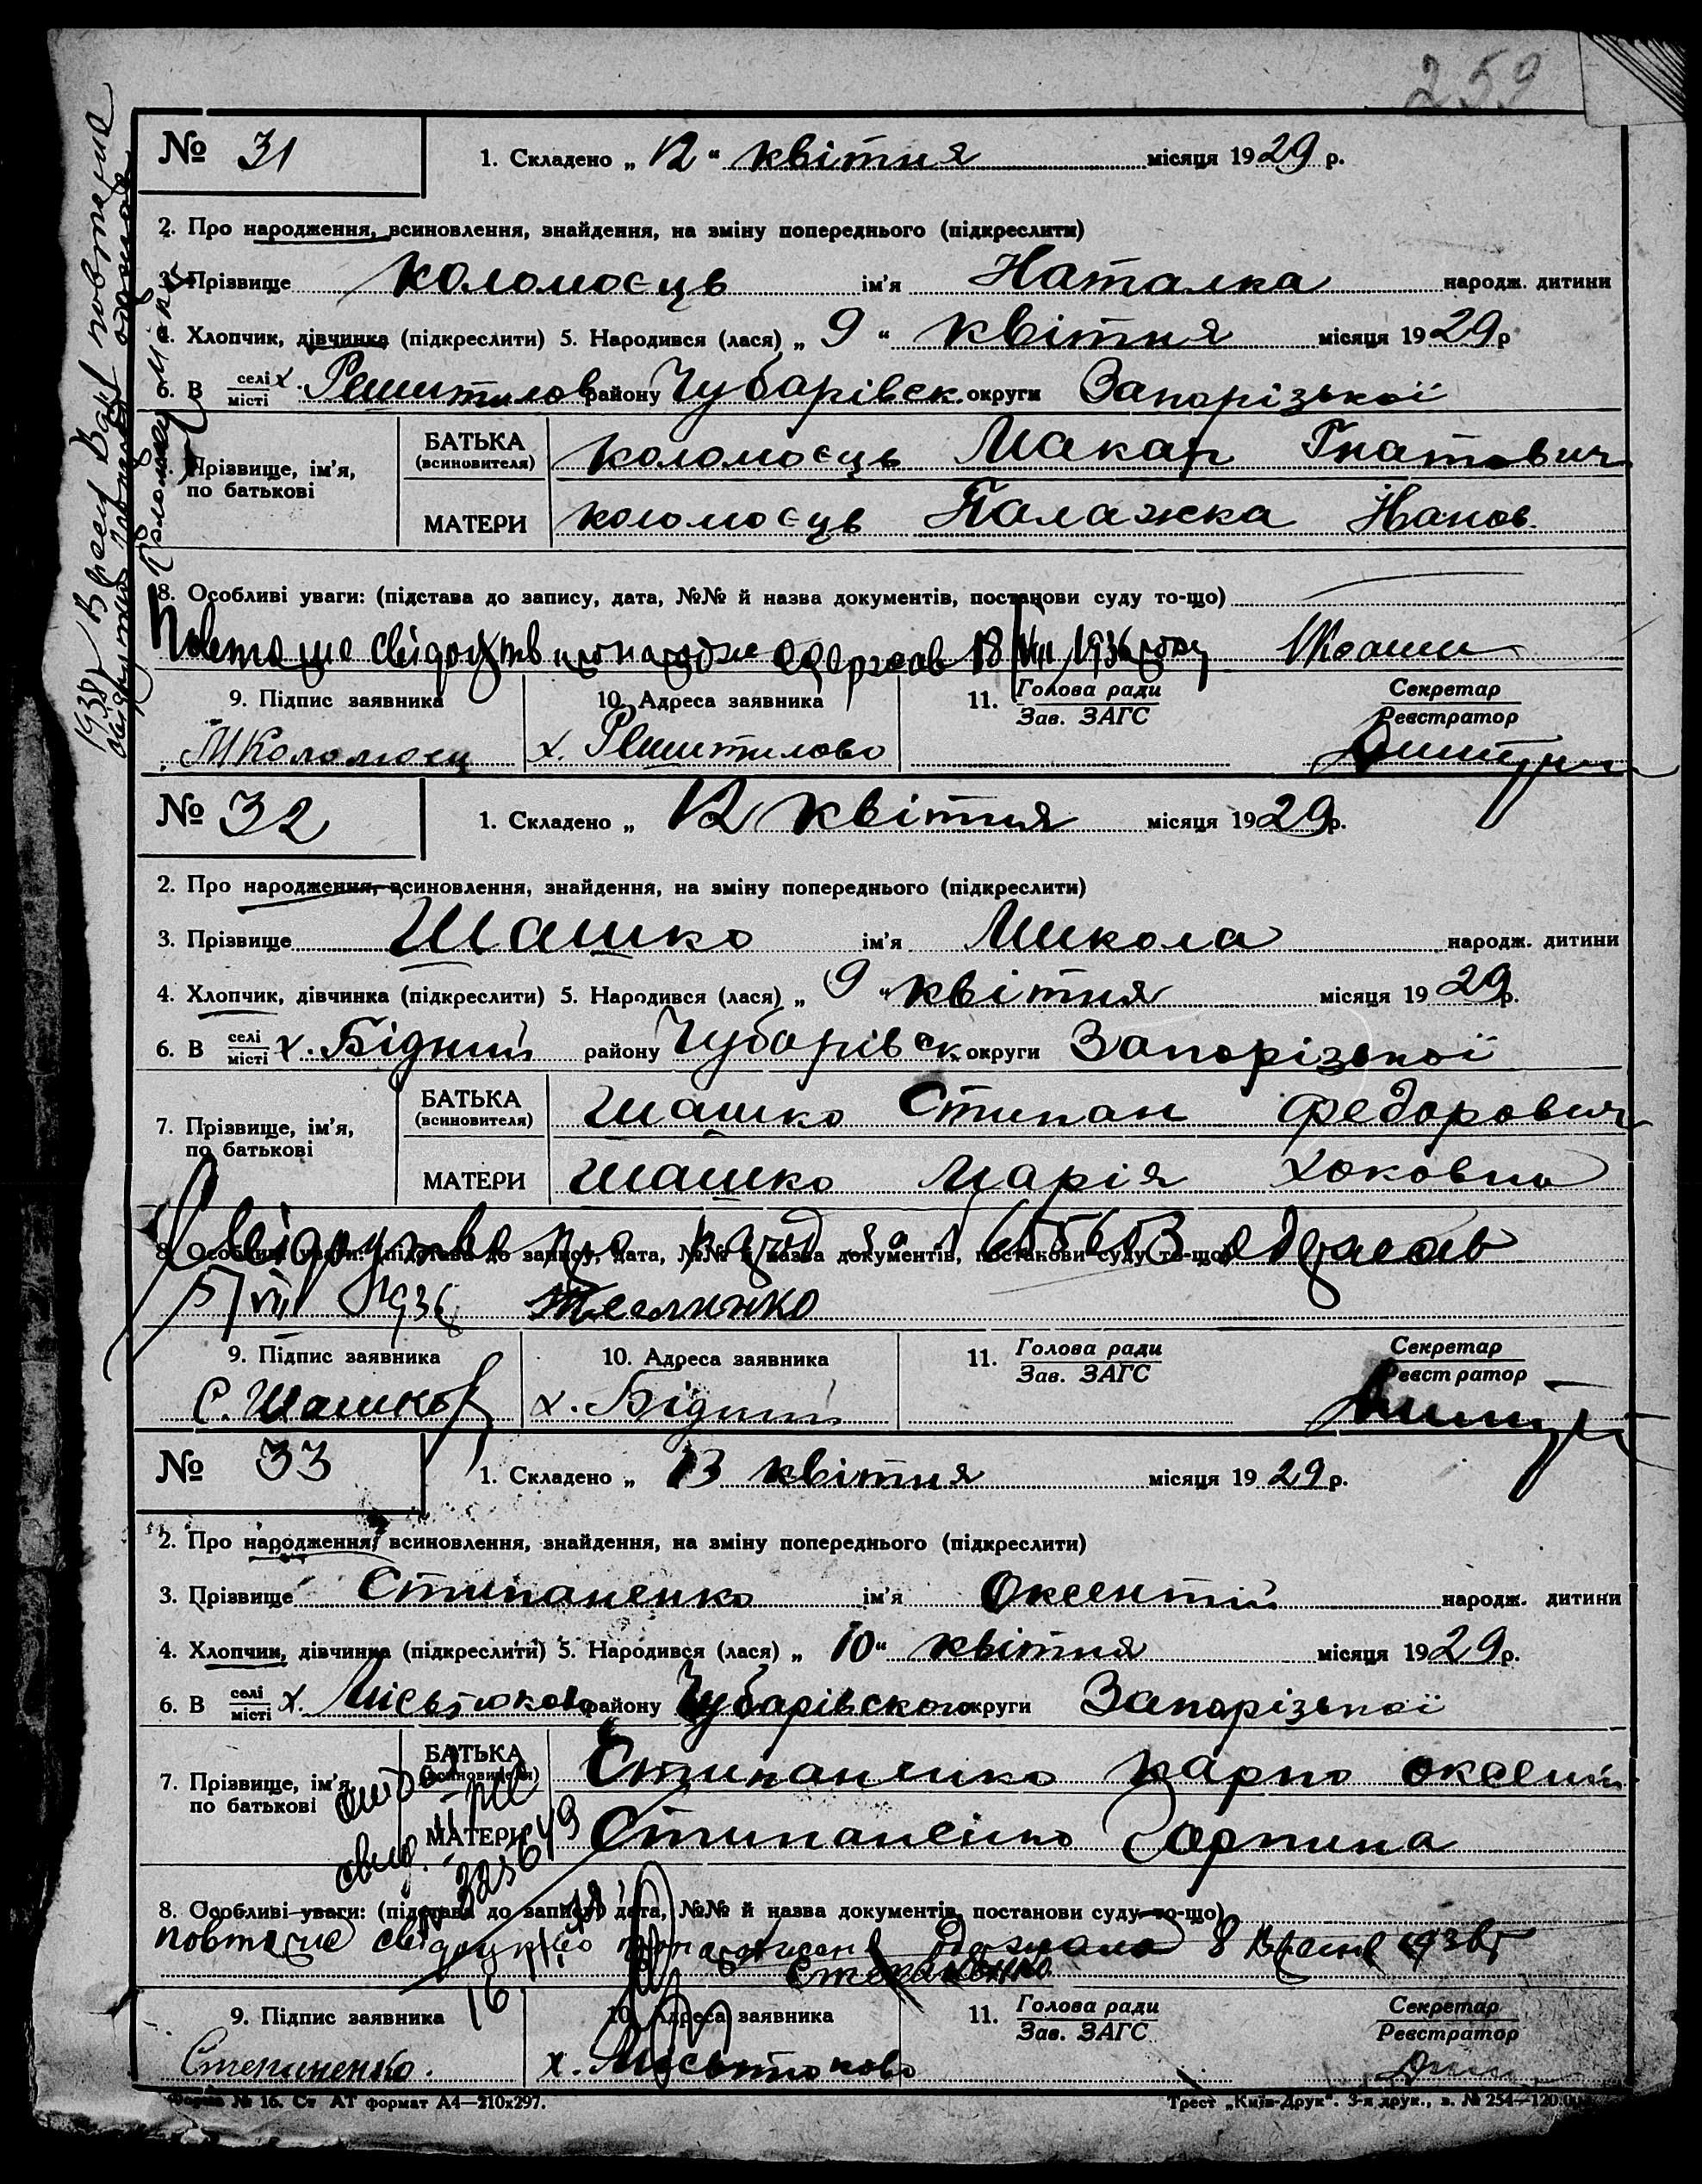 259
№ 31
1. Складено „ 12 “ квітня місяця 1929 р.
2. Про народження, всиновлення, знайдення, на зміну попереднього (підкреслити)
3. Прізвище Коломоєць ім'я Наталка народж. дитини
4. Хлопчик, дівчинка (підкреслити) 5. Народився (лася) „ 9 “ квітня місяця 1929 р
6. В селі місті х. Решитилов району Чубарівськ. округи Запорізької
7. Прізвище, ім'я, по батькові
БАТЬКА (всиновителя) Коломоєць Макар Гнатович
МАТЕРИ Коломоєць Палажка Іванов.
8. Особливі уваги: (підстава до запису, дата, №№ й назва документів, постанови суду то-що)
18/VIII 1936 року
9. Підпис заявника 10. Адреса заявника 11. Голова ради Зав. ЗАГС Секретар Реєстратор
М Коломоєц х. Решитилово
№ 32
1. Складено „ 12 квітня місяця 1929 р.
2. Про народження, всиновлення, знайдення, на зміну попереднього (підкреслити)
3. Прізвище Шашко ім'я Микола народж. дитини
4. Хлопчик, дівчинка (підкреслити) 5. Народився (лася) „ 9 “ квітня місяця 1929 р.
6. В селі місті х. Бідний району Чубарівськ. округи Запорізької
7. Прізвище, ім'я, по батькові
БАТЬКА (всиновителя) Шашко Стипан Федорович
МАТЕРИ Шашко Марія
8. Особливі уваги: (підстава до запису, дата, №№ й назва документів, постанови суду то-що)
5/VII 1936
9. Підпис заявника 10. Адреса заявника 11. Голова ради Зав. ЗАГС Секретар Реєстратор
С. Шашко х. Бідний
№ 33
1. Складено „ 13 квітня місяця 1929 р.
2. Про народження, всиновлення, знайдення, на зміну попереднього (підкреслити)
3. Прізвище Стипаненко ім'я Оксентій народж. дитини
4. Хлопчик, дівчинка (підкреслити) 5. Народився (лася) „ 10 “ квітня місяця 1929 р.
6. В селі місті х. району Чубарівського округи Запорізької
7. Прізвище, ім'я, по батькові
БАТЬКА (всиновителя) Стипаненко Карпо Оксент
МАТЕРИ Стипаненко Горпина
8. Особливі уваги: (підстава до запису, дата, №№ й назва документів, постанови суду то-що)
Степаненко
9. Підпис заявника 10. Адреса заявника 11. Голова ради Зав. ЗАГС Секретар Реєстратор
Степаненко. х.
Форма № 16. Ст АТ формат А4—210х297. Трест „Київ-Друк“. 3-я друк., з. № 254—120.0